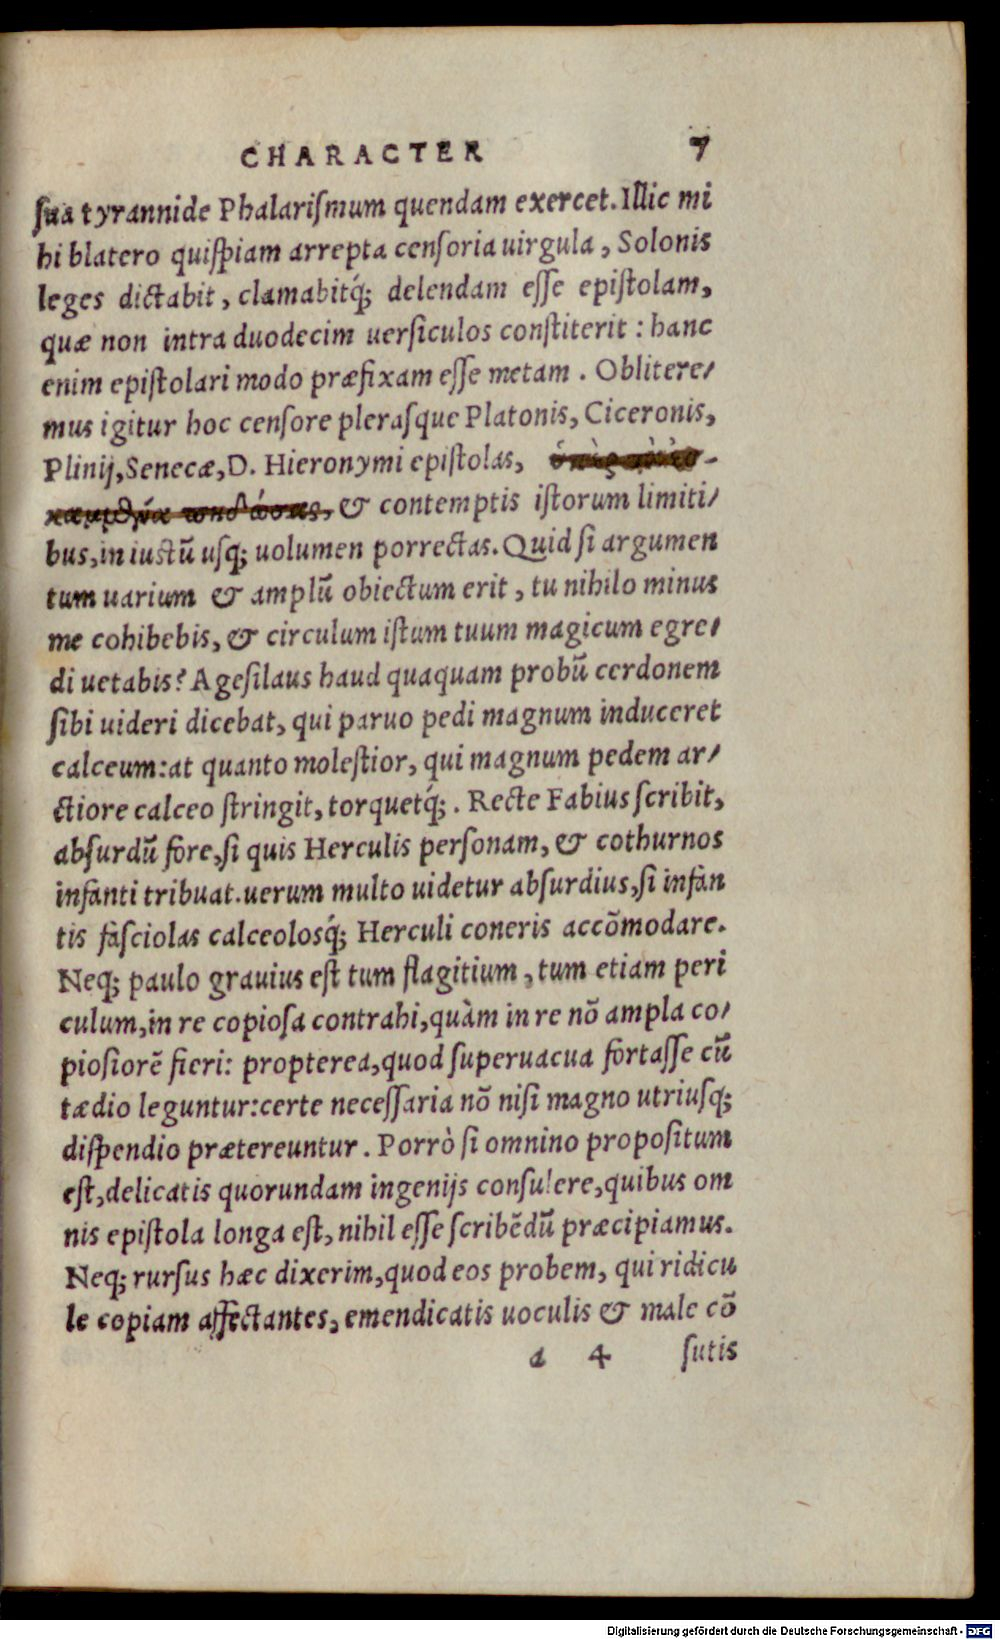 CHARACTER 7
ſua tyrannide Phalariſmum quendam exercet. Illic mi
hi blatero quiſpiam arrepta cenſoria uirgula, Solonis
leges dictabit, clamabitq́; delendam eſſe epiſtolam,
quæ non intra duodecim uerſiculos conſtiterit: hanc
enim epiſtolari modo præfixam eſſe metam. Oblitere/
mus igitur hoc cenſore pleraſque Platonis, Ciceronis,
Plinij, Senecæ, D. Hieronymi epiſtolas,
& contemptis iſtorum limiti/
bus, in iuſtũ uſq; uolumen porrectas. Quid ſi argumen
tum uarium & amplũ obiectum erit, tu nihilo minus
me cohibebis, & circulum iſtum tuum magicum egre/
di uetabis? Ageſilaus haud quaquam probũ cerdonem
ſibi uideri dicebat, qui paruo pedi magnum induceret
calceum: at quanto moleſtior, qui magnum pedem ar/
ctiore calceo ſtringit, torquetq́;. Recte Fabius ſcribit,
abſurdũ fore, ſi quis Herculis perſonam, & cothurnos
infanti tribuat. uerum multo uidetur abſurdius, ſi infan
tis faſciolas calceolosq́; Herculi coneris accõmodare.
Neq; paulo grauius eſt tum flagitium, tum etiam peri
culum, in re copioſa contrahi, quàm in re nõ ampla co/
pioſiorẽ fieri: propterea, quod ſuperuacua fortaſſe cũ
tædio leguntur: certe neceſſaria nõ niſi magno utriuſq;
diſpendio prætereuntur. Porrò ſi omnino propoſitum
eſt, delicatis quorundam ingenijs conſulere, quibus om
nis epiſtola longa eſt, nihil eſſe ſcribẽdũ præcipiamus.
Neq; rurſus hæc dixerim, quod eos probem, qui ridicu
le copiam affectantes, emendicatis uoculis & male cõ
a 4 ſutis
Digitalisierung gefördert durch die Deutsche Forschungsgemeinschaft - DFG